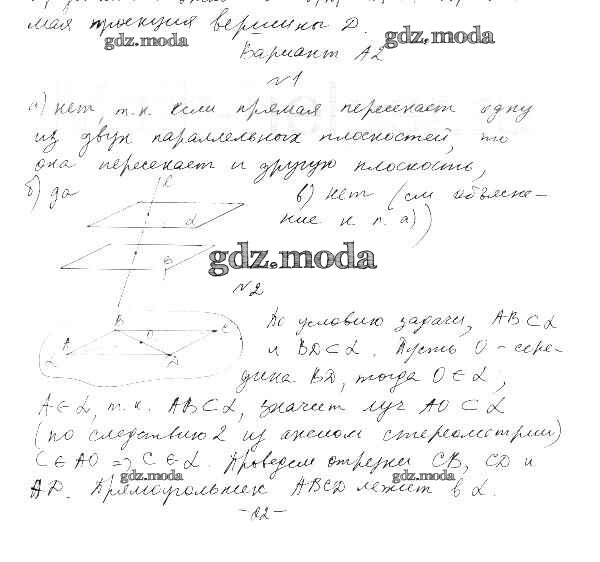 мая проекция вершины D.
gdz.moda
gdz.moda
Вариант А2
№1
а) нет, т.к. если прямая пересекает одну
из двух параллельных плоскостей, то
она пересекает и другую плоскость,
б) да
в) нет (см объясне-
ние к п. а))
ℓ
α
β
gdz.moda
№2
По условию задачи, AB⊂α
и BD⊂α. Пусть O - сере-
дина BD, тогда O∈α;
B
C
A
O
D
α
A∈α, т.к. AB⊂α, значит луч AO⊂α
(по следствию 2 из аксиом стереометрии)
C∈AO => C∈α. Проведем отрезки CB, CD и
AD. Прямоугольник ABCD лежит в α.
gdz.moda
gdz.moda